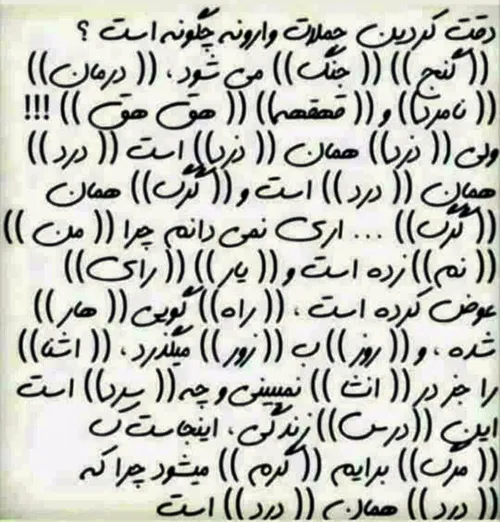 دقت کردین جملات وارونه چگونه است ؟
((گنج)) ((جنگ)) می شود ، ((درمان))
((نامرد)) و ((قهقهه)) ((هق هق)) !!!
ولی ((دزد)) همان ((دزد)) است ((درد))
همان ((درد)) است و ((گرگ)) همان
((گرگ)) ... اری نمی دانم چرا ((من))
((نم)) زده است و ((یار)) ((رای))
عوض کرده است ، ((راه)) گویی ((هار))
شده ، و ((روز)) ب ((زور)) میگذرد ، ((اشنا))
را جز در ((انشا)) نمیبینی و چه ((سرد)) است
این ((درس)) زندگی ، اینجاست ک
((مرگ)) برایم ((گرم)) میشود چرا که
((درد)) همان ((درد)) است